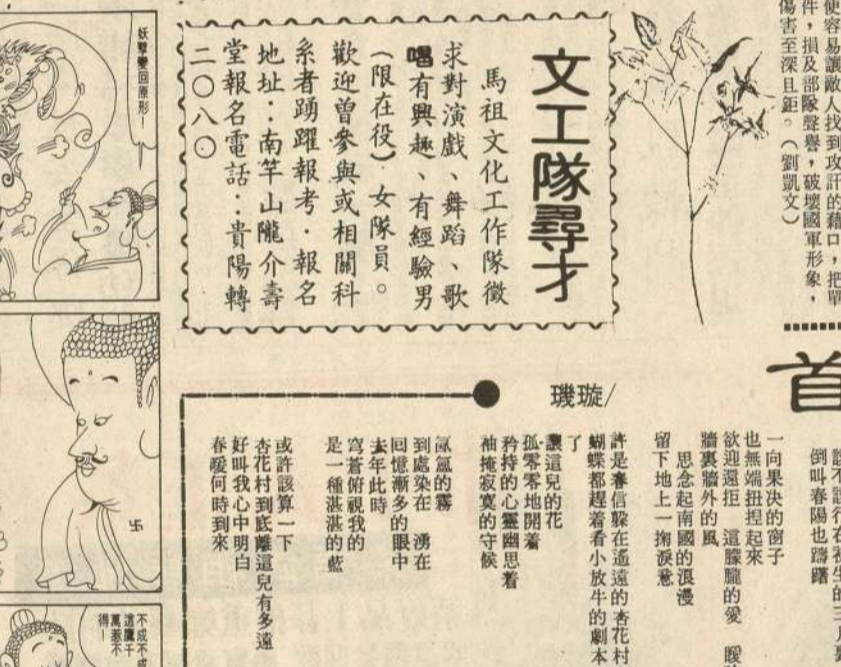 便容易讓敵人找到攻訐的藉口，把單
件，損及部隊聲譽，破壞國軍形象，
傷害至深且鉅。（劉凱文）
文工隊尋才
馬祖文化工作隊徵
求對演戲、舞蹈、歌
唱有興趣、有經驗男
（限在役）·女隊員。
歡迎曾參與或相關科
系者踴躍報考·報名
地址：南竿山隴介壽
堂報名電話：貴陽轉
二〇八〇
妖孽變回原形！
首
/璇璣
倒叫春陽也躊躇
一向果決的窗子
也無端扭捏起來
欲迎還拒　這朦朧的愛　暖
牆裏牆外的風
思念起南國的浪漫
留下地上一掬淚意
許是春信躲在遙遠的杏花村
蝴蝶都趕着看小放牛的劇本
了
讓這兒的花
孤零零地開着
矜持的心靈幽思着
袖掩寂寞的守候
氤氳的霧
到處染在　湧在
回憶漸多的眼中
去年此時
穹蒼俯視我的
是一種湛湛的藍
或許該算一下
杏花村到底離這兒有多遠
好叫我心中明白
春暖何時到來
卐
不成不成
這鷹千
萬惹不
得！